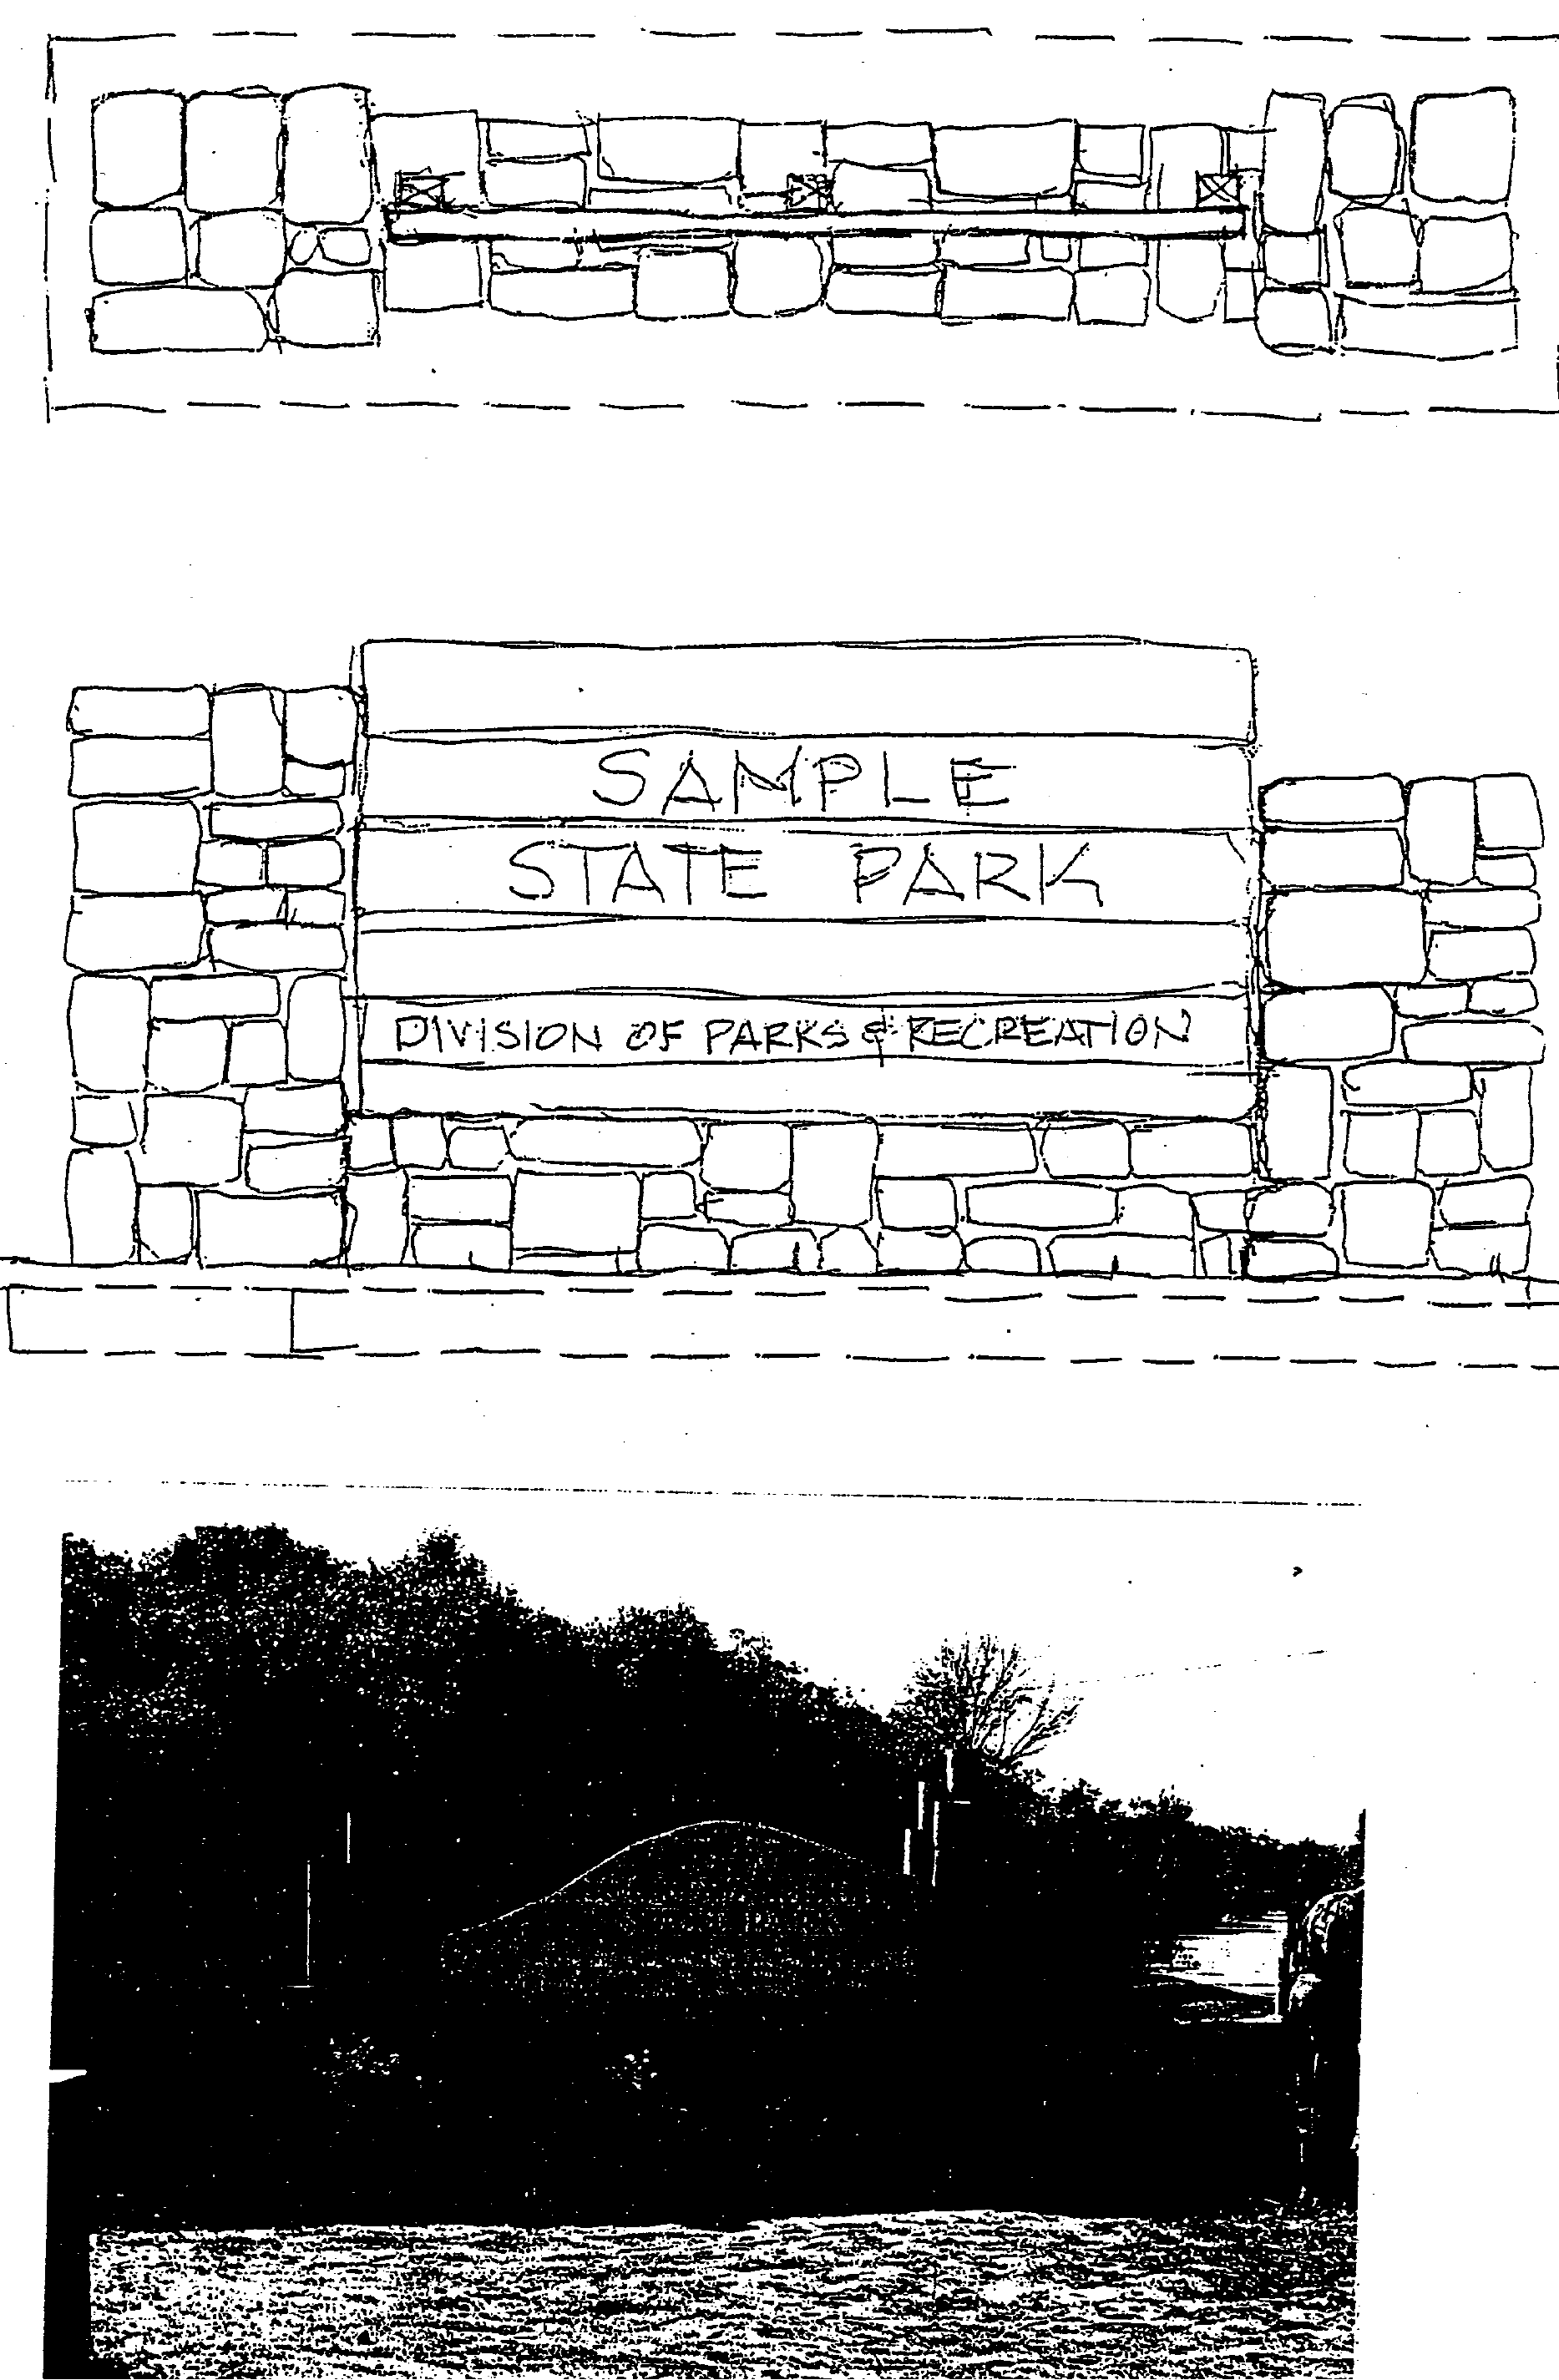 SAMPLE
STATE PARK
DIVISION OF PARKS & RECREATION